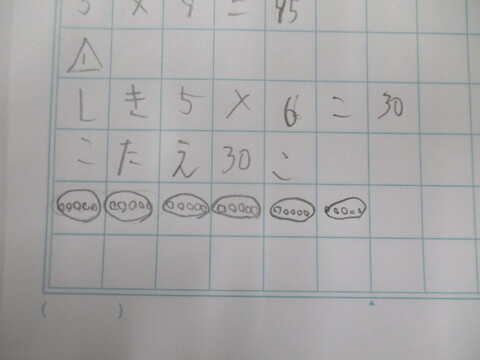 5 × 9 = 45
1
しき 5 × 6 = 30
こたえ 30 こ
( )